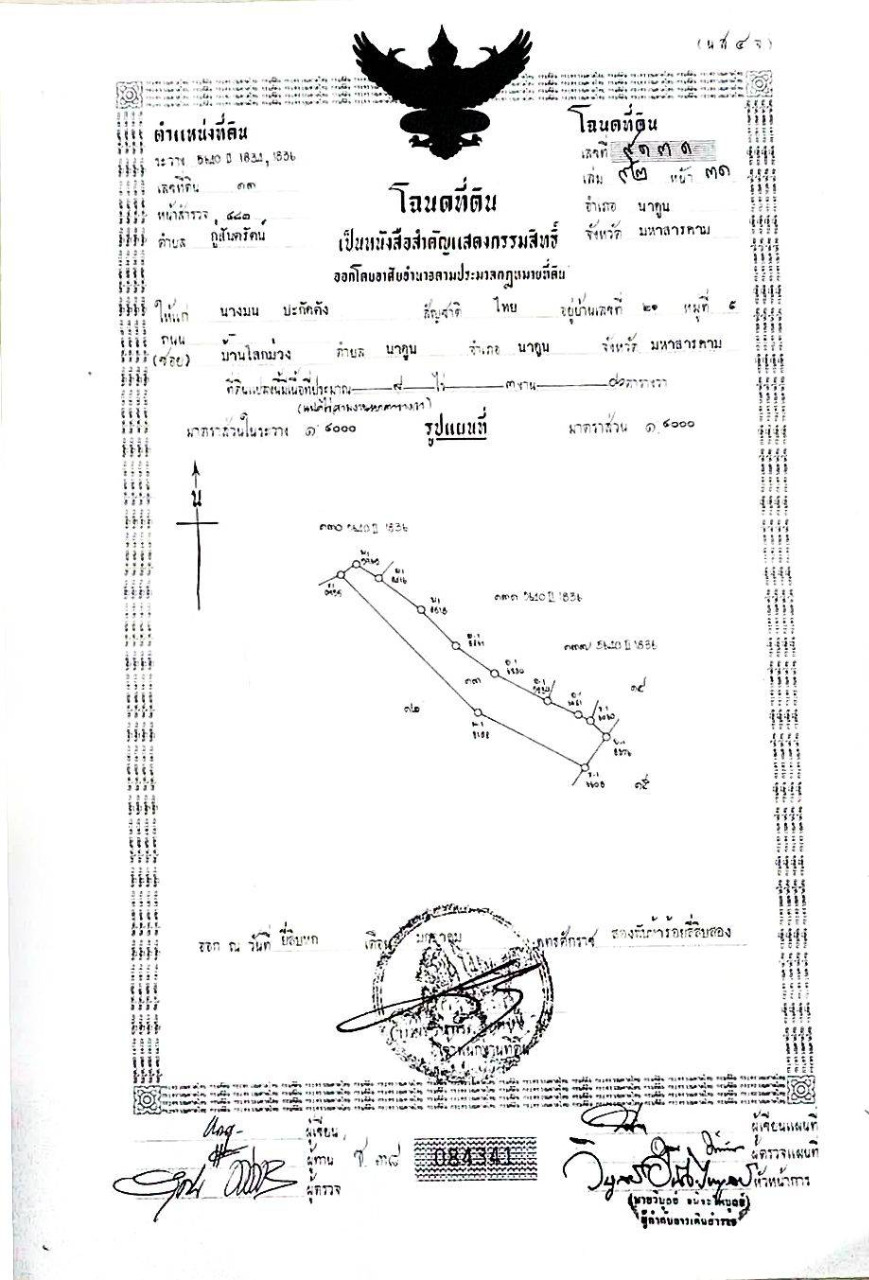 (น ส ๔ จ)
ตำแหน่งที่ดิน
ระวาง 5640 II 1834, 1836
เลขที่ดิน ๓๓
หน้าสำรวจ ๔๘๓
ตำบล กู่สันตรัตน์
โฉนดที่ดิน
เลขที่ ๙๑๓๑
เล่ม ๙๒ หน้า ๓๑
อำเภอ นาดูน
จังหวัด มหาสารคาม
โฉนดที่ดิน
เป็นหนังสือสำคัญแสดงกรรมสิทธิ์
ออกโดยอาศัยอำนาจตามประมวลกฎหมายที่ดิน
ให้แก่ นางมน ปะกัดตัง สัญชาติ ไทย อยู่บ้านเลขที่ ๒๑ หมู่ที่ ๕
ถนน
(ซอย) บ้านโสกม่วง ตำบล นาดูน อำเภอ นาดูน จังหวัด มหาสารคาม
ที่ดินแปลงนี้มีเนื้อที่ประมาณ ๘ ไร่ ๓ งาน ตารางวา
มาตราส่วนในระวาง ๑:๔๐๐๐
รูปแผนที่
มาตราส่วน ๑:๔๐๐๐
น
๑๓๐ 5640 II 1836
๑๓๓ 5640 II 1836
๑๓๗ 5640 II 1836
๓๓
๓๒
๑๔
๑๕
ออก ณ วันที่ ยี่สิบหก เดือน มกราคม พุทธศักราช สองพันห้าร้อยสี่สิบสอง
เจ้าพนักงานที่ดิน
ผู้เขียน
ผู้ทาน
ผู้ตรวจ
ช. ๓๘
084341
ผู้เขียนแผนที่
ผู้ตรวจแผนที่
หัวหน้าการ
ผู้กำกับการเดินสำรวจ